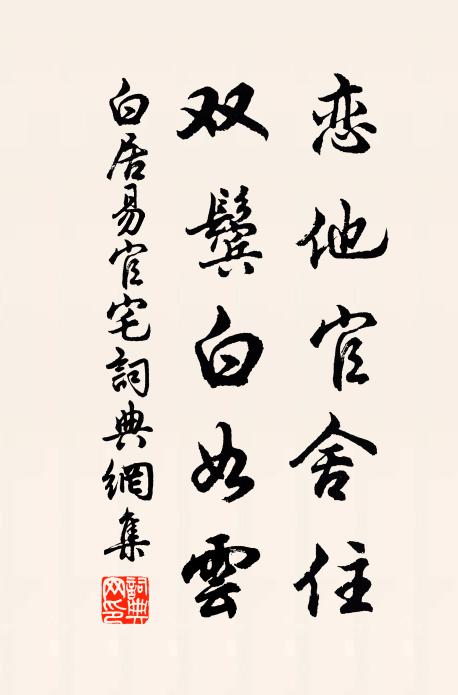 恋他官舍住
双鬓白如雲
白居易官宅詞典網集
詞典网印